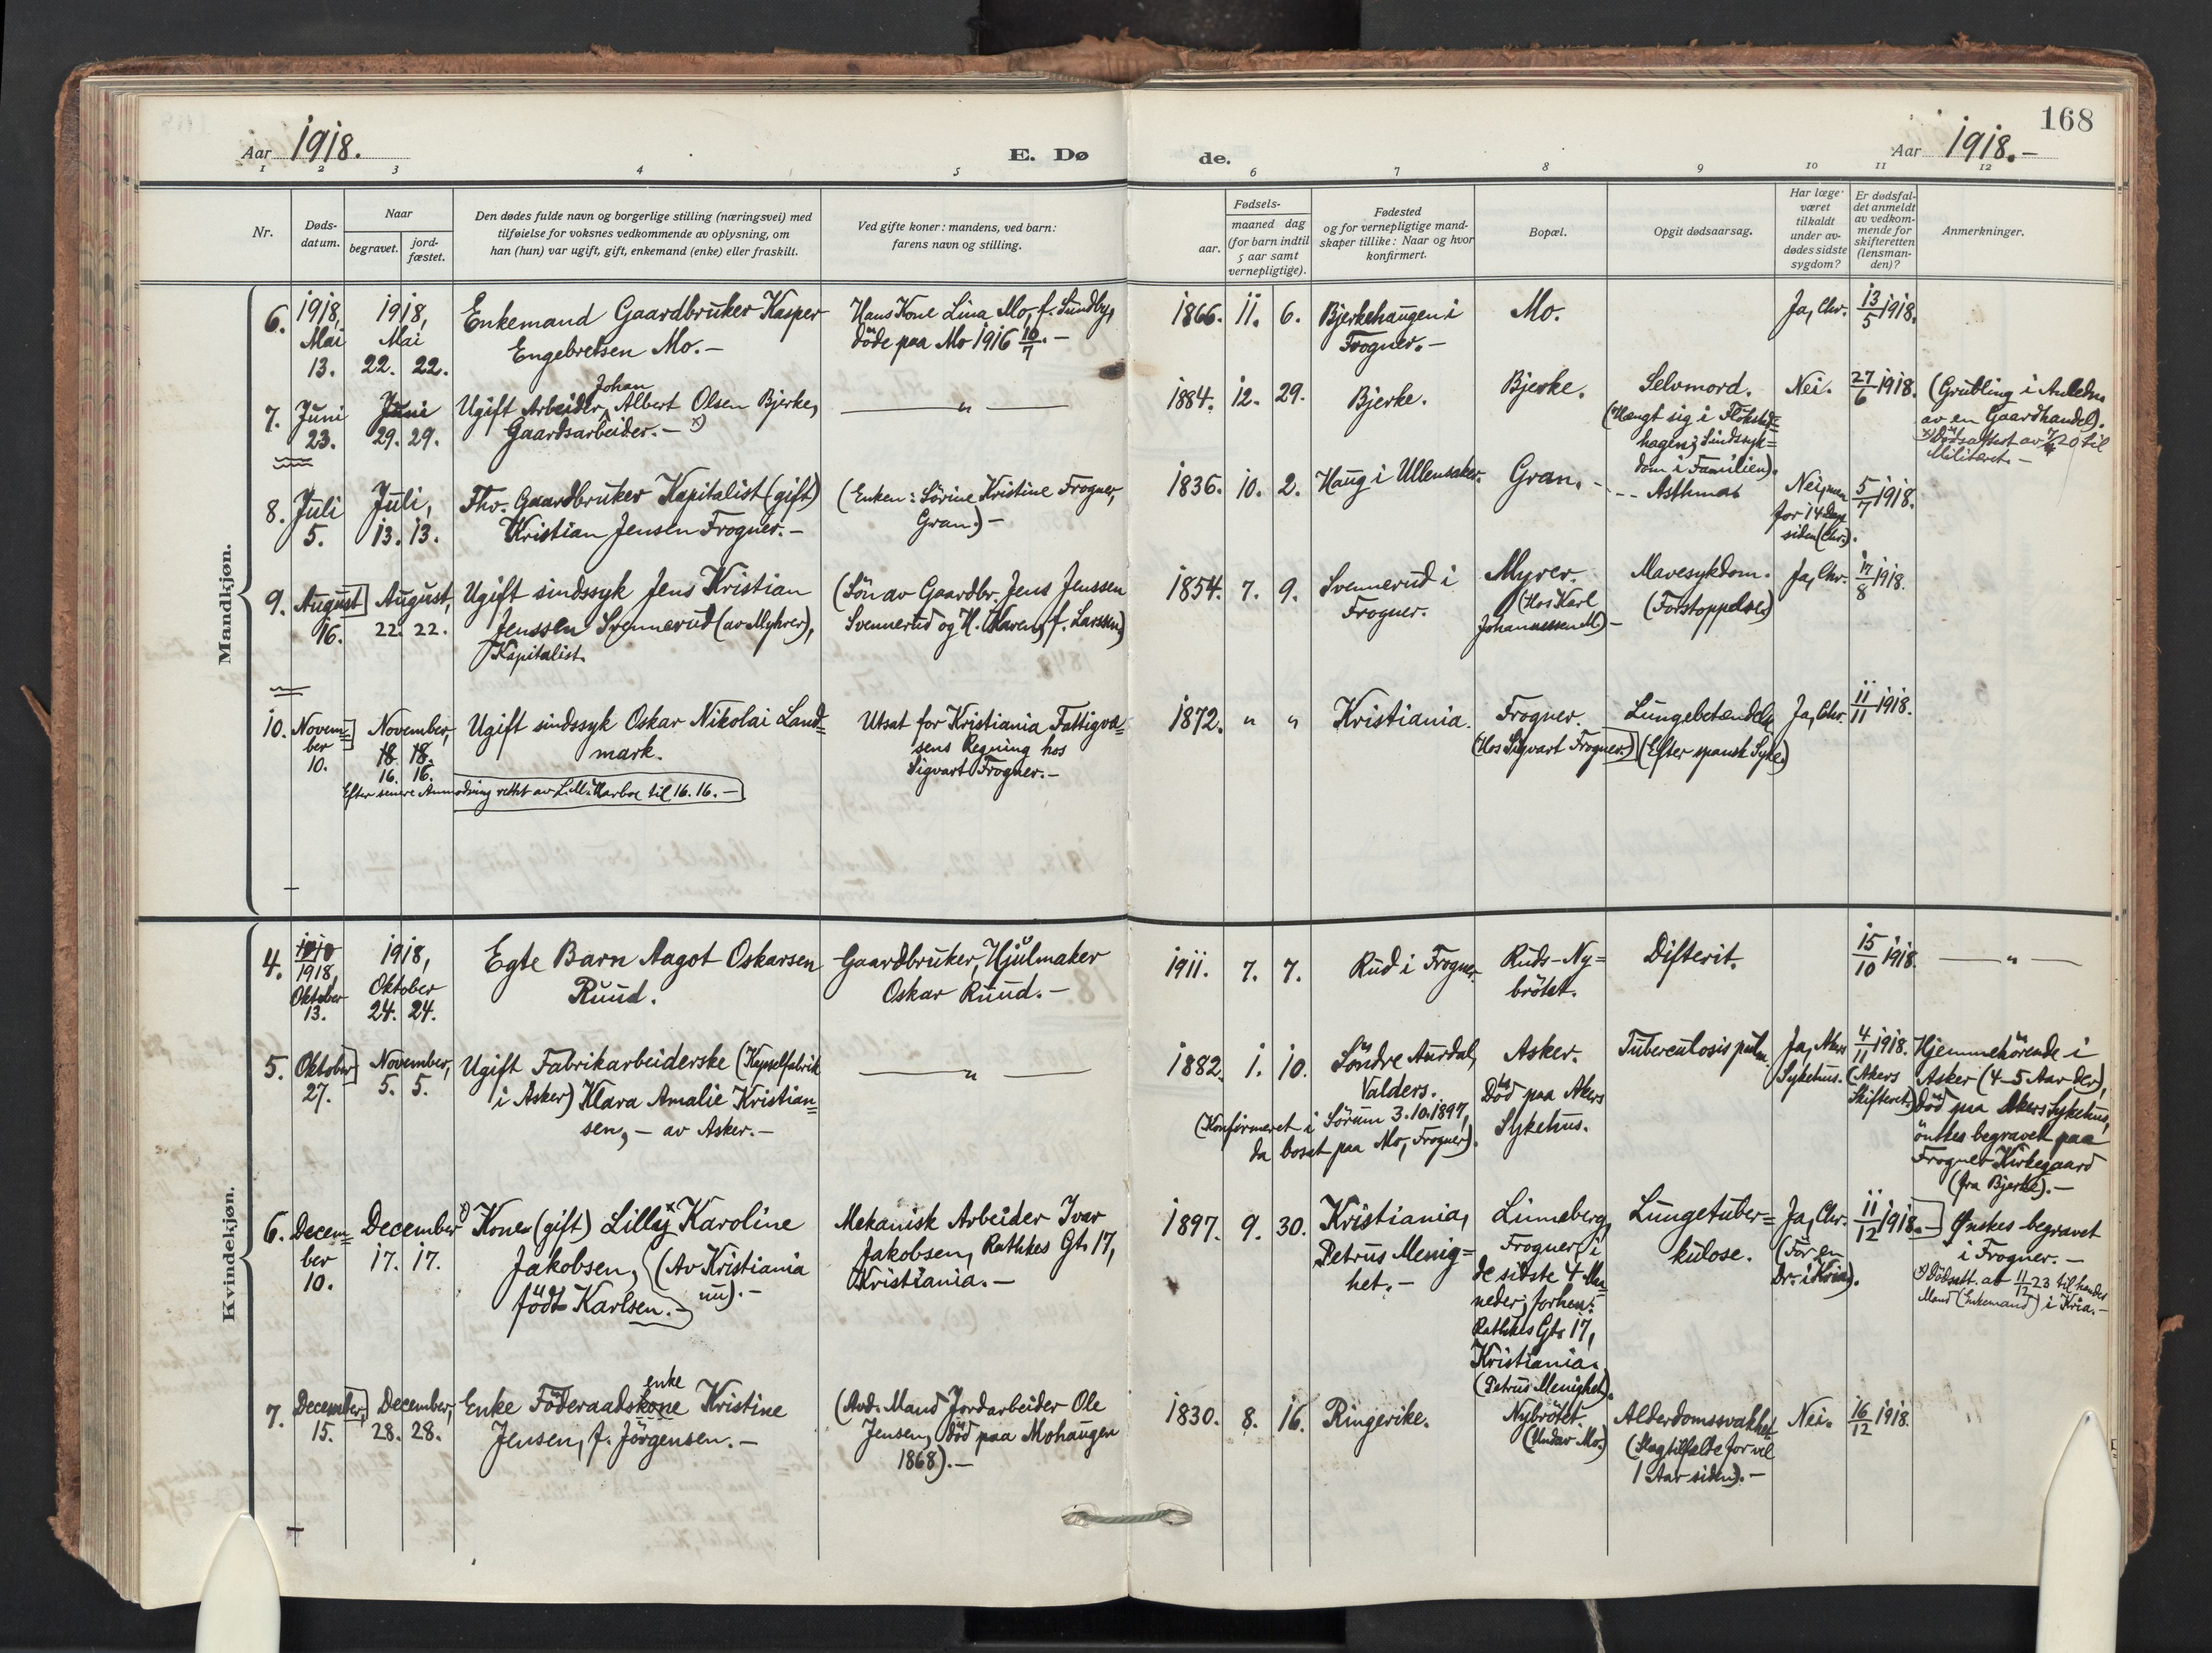 168
Aar 1918.
E. Dø
de.
Aar 1918.-
1 2 3 4 5 6 7 8 9 10 11 12
Nr.
Døds-
datum.
Naar
begravet.
jord-
fæstet.
Den dødes fulde navn og borgerlige stilling (næringsvei) med
tilføielse for voksnes vedkommende av oplysning, om
han (hun) var ugift, gift, enkemand (enke) eller fraskilt.
Ved gifte koner: mandens, ved barn:
farens navn og stilling.
Fødsels-
aar.
maaned dag
(for barn indtil
5 aar samt
vernepligtige).
Fødested
og for vernepligtige mand-
skaper tillike: Naar og hvor
konfirmert.
Bopæl.
Opgit dødsaarsag.
Har læge
været
tilkaldt
under av-
dødes sidste
sygdom?
Er dødsfal-
det anmeldt
av vedkom-
mende for
skifteretten
(lensman-
den)?
Anmerkninger.
Mandkjøn.
6.
1918,
Mai
13.
1918,
Mai
22. 22.
Enkemand Gaardbruker Kasper
Engebretsen Mo.-
Hans Kone Lina Mo, f. Sundby,
döde paa Mo 1916 10/7.-
1866. 11. 6.
Bjerkehaugen i
Frogner.-
Mo.
Ja, Chr.
13/5 1918.
7.
Juni
23.
Juni
29. 29.
Johan
Ugift Arbeider, Albert Olsen Bjerke,
Gaardsarbeider.- x)
— " —
1884. 12. 29.
Bjerke.
Bjerke.
Selvmord.
(Hængt sig i
hagen; Sindssyk=
dom i Familien).
Nei.
27/6 1918.
(Grubling i Anledn.
av en Gaardhandel).
x) Dödsattest av 20 til
Militæret.-
8.
Juli
5.
Juli,
13. 13.
Fhv. Gaardbruker Kapitalist (gift)
Kristian Jensen Frogner.-
(Enken: Sörine Kristine Frogner,
Gran.)-
1836. 10. 2.
Haug i Ullensaker.
Gran.
- - - Asthma
Nei, men
for 14 Dage
siden (Chr.).
5/7 1918.
9.
August
16.
August,
22. 22.
Ugift sindssyk Jens Kristian
Jenssen Svennerud (av Myhrer),
Kapitalist.
(Sön av Gaardbr. Jens Jenssen
Svennerud og H. (Karen, f. Larssen)
1854. 7. 9.
Svennerud i
Frogner.
Myrer.
(Hos Karl
Johannessen M.)-
Mavesykdom.
(Forstoppelse)
Ja, Chr.
17/8 1918.
10.
Novem=
ber
10.
November,
18. 18.
16. 16.
Ugift sindssyk Oskar Nikolai Land=
mark.
Efter senere Anmodning rettet av L.M. Harboe til 16. 16.-
Utsat for Kristiania Fattigvæ=
sens Regning hos
Sigvart Frogner.-
1872. " "
Kristiania.
Frogner.
(Hos Sigvart Frogner.)
Lungebetændelse
(Efter spansk Syke)
Ja, Chr.
11/11 1918.
Kvindekjøn.
4.
1918,
Oktober
13.
1918,
Oktober
24. 24.
Egte Barn Aagot Oskarsen
Ruud.
Gaardbruker, Hjulmaker
Oskar Ruud.-
1911. 7. 7.
Rud i Frogner.
Ruds-Ny=
brötet.
Difterit.
15/10 1918.
— " —
5.
Oktober
27.
November,
5. 5.
Ugift Fabrikarbeiderske (Kapselfabrik
i Asker) Klara Amalie Kristian=
sen, - av Asker.-
— " —
1882. 1. 10.
Söndre Aurdal,
Valders.
(Konfirmeret i Sörum 3.10.1897,
da bosat paa Mo, Frogner).
Asker.
Död paa Akers
Sykehus.
Tuberculosis pulm.
Ja, Akers
Sykehus.
4/11 1918.
(Akers
Skifteret)
Hjemmehörende i
Asker (4-5 Aar der),
Död paa Akers Sykehus,
önskes begravet paa
Frogner Kirkegaard
(fra Bjerke).-
6.
Decem=
ber
10.
December
17. 17.
x) Kone (gift) Lilly Karoline
Jakobsen, (Av Kristiania
nu).-
född Karlsen.-
Mekanisk Arbeider Ivar
Jakobsen, Rathkes Gt. 17,
Kristiania.-
1897. 9. 30.
Kristiania,
Petrus Menig=
het.-
Linneberg,
Frogner, i
de sidste 4 Maa=
neder; forhen:
Rathkes Gt. 17,
Kristiania.
(Petrus Menighet).
Lungetuber=
kulose.
Ja, Chr.
(För en
Dr. i Kria).
11/12 1918.-
Ønskes begravet
i Frogner.-
x) Dödsatt. av 11/12 23 til hendes
Mand (Enkemand) i Kria.-
7.
December,
15.
December,
28. 28.
enke
Enke Föderaadskone Kristine
Jensen, f. Jörgensen.-
(Avd. Mand Jordarbeider Ole
Jensen, död paa Mohaugen
1868).-
1830. 8. 16.
Ringerike.
Nybrötet.
(Under Mo.)
Alderdomssvakhet
(Slagtilfælde for vel
1 Aar siden).-
Nei.
16/12 1918.